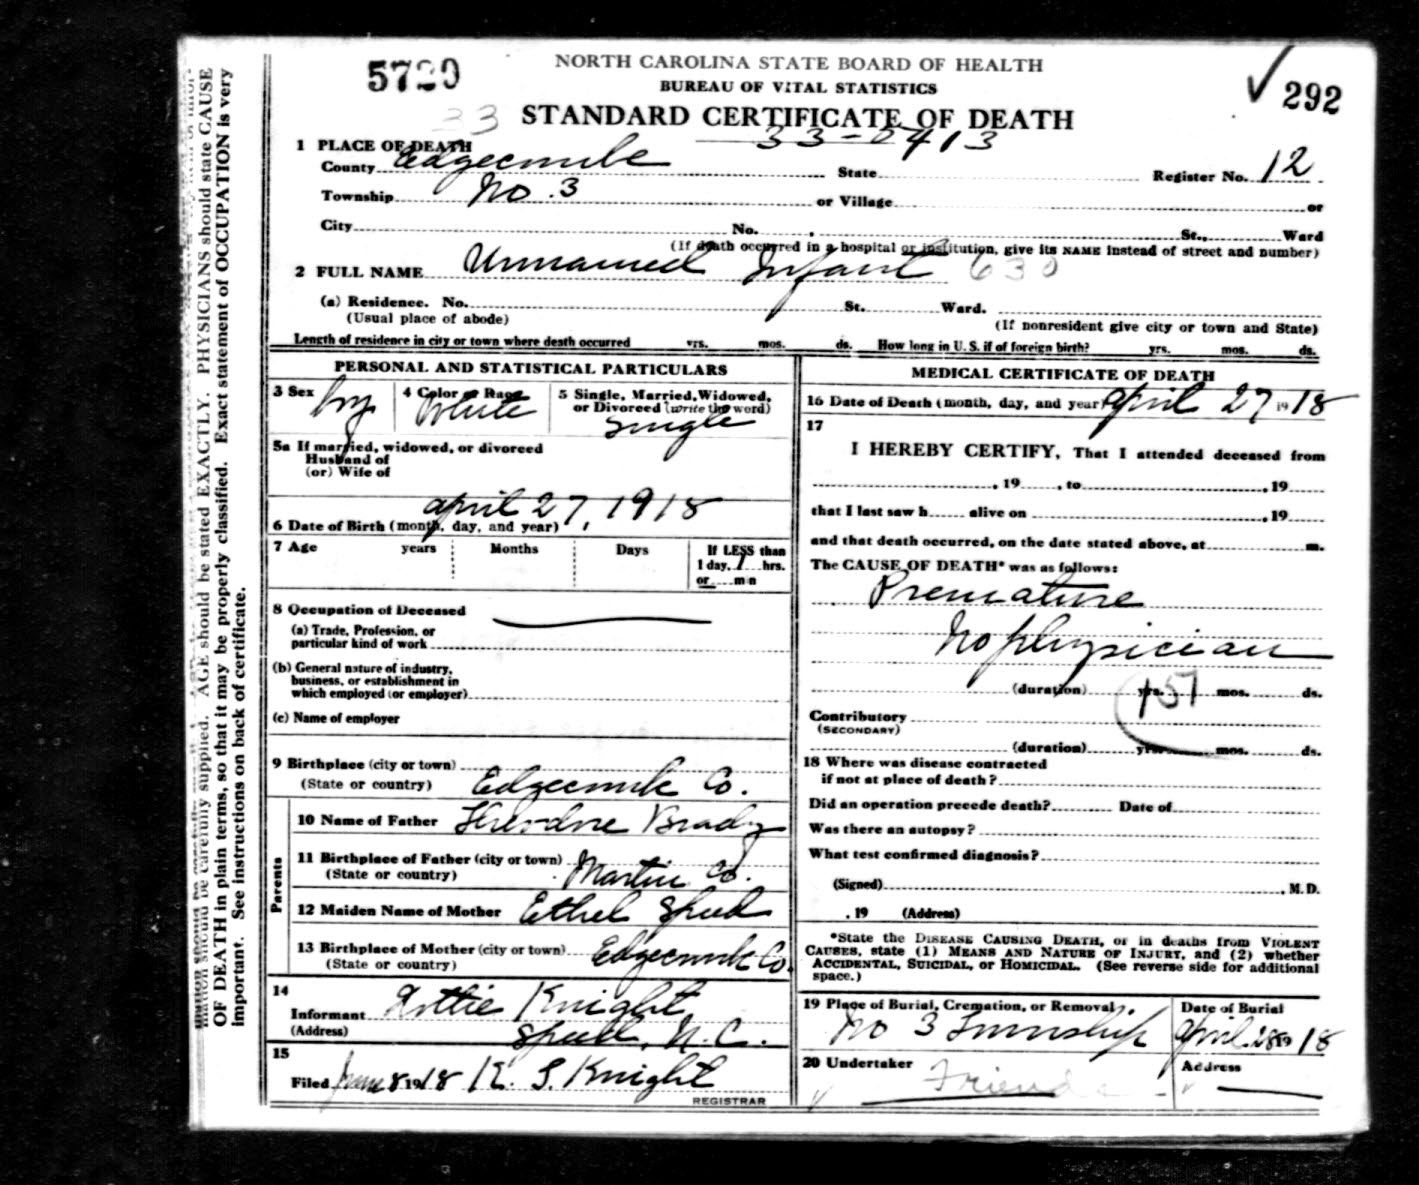 5720
NORTH CAROLINA STATE BOARD OF HEALTH
BUREAU OF VITAL STATISTICS
292
33
STANDARD CERTIFICATE OF DEATH
33-0413
1 PLACE OF DEATH
County Edgecombe State Register No. 12
Township No. 3 or Village or
City No. , St., Ward
(If death occurred in a hospital or institution, give its NAME instead of street and number)
2 FULL NAME Unnamed Infant 630
(a) Residence. No. St. Ward.
(Usual place of abode) (If nonresident give city or town and State)
Length of residence in city or town where death occurred yrs. mos. ds. How long in U.S. if of foreign birth? yrs. mos. ds.
PERSONAL AND STATISTICAL PARTICULARS
3 Sex boy 4 Color or Race White 5 Single, Married, Widowed, or Divorced (write the word) Single
5a If married, widowed, or divorced
Husband of
(or) Wife of
6 Date of Birth (month, day, and year) April 27, 1918
7 Age years Months Days If LESS than
1 day, 1 hrs.
or min
8 Occupation of Deceased
(a) Trade, Profession, or
particular kind of work
(b) General nature of industry,
business, or establishment in
which employed (or employer)
(c) Name of employer
9 Birthplace (city or town)
(State or country) Edgecombe Co.
Parents
10 Name of Father Theodore Brady
11 Birthplace of Father (city or town)
(State or country) Martin Co.
12 Maiden Name of Mother Ethel Speed
13 Birthplace of Mother (city or town) Edgecombe Co.
(State or country)
14
Informant Lottie Knight
(Address) Speed, N.C.
15
Filed June 8 1918 K. S. Knight
REGISTRAR
MEDICAL CERTIFICATE OF DEATH
16 Date of Death (month, day, and year) April 27 1918
17
I HEREBY CERTIFY, That I attended deceased from
, 19 , to , 19
that I last saw h alive on , 19
and that death occurred, on the date stated above, at m.
The CAUSE OF DEATH* was as follows:
Premature
No physician
(duration) yrs. mos. ds.
151
Contributory
(SECONDARY)
(duration) yrs. mos. ds.
18 Where was disease contracted
if not at place of death?
Did an operation precede death? Date of
Was there an autopsy?
What test confirmed diagnosis?
(Signed) , M.D.
, 19 (Address)
*State the DISEASE CAUSING DEATH, or in deaths from VIOLENT
CAUSES, state (1) MEANS AND NATURE OF INJURY, and (2) whether
ACCIDENTAL, SUICIDAL, or HOMICIDAL. (See reverse side for additional
space.)
19 Place of Burial, Cremation, or Removal Date of Burial
No 3 Township April 28 1918
20 Undertaker Address
Friend
mation should be carefully supplied. AGE should be stated EXACTLY. PHYSICIANS should state CAUSE
OF DEATH in plain terms, so that it may be properly classified. Exact statement of OCCUPATION is very
important. See instructions on back of certificate.